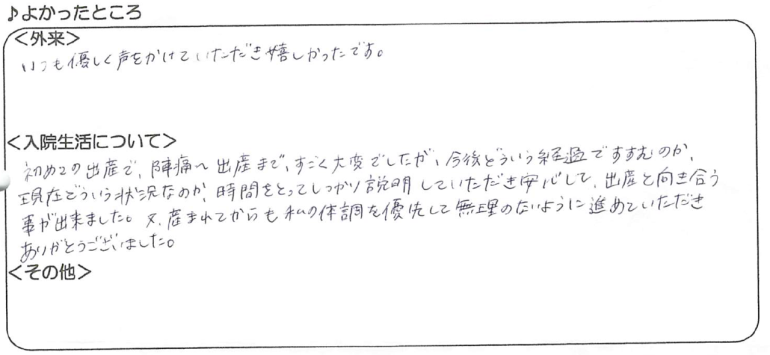 ♪よかったところ
<外来>
いつも優しく声をかけていただき嬉しかったです。
<入院生活について>
初めての出産で、陣痛〜出産まで、すごく大変でしたが、今後どういう経過ですすむのか、
現在どういう状況なのか、時間をとってしっかり説明していただき安心して、出産と向き合う
事が出来ました。又、産まれてからも私の体調を優先して無理のないように進めていただき
ありがとうございました。
<その他>